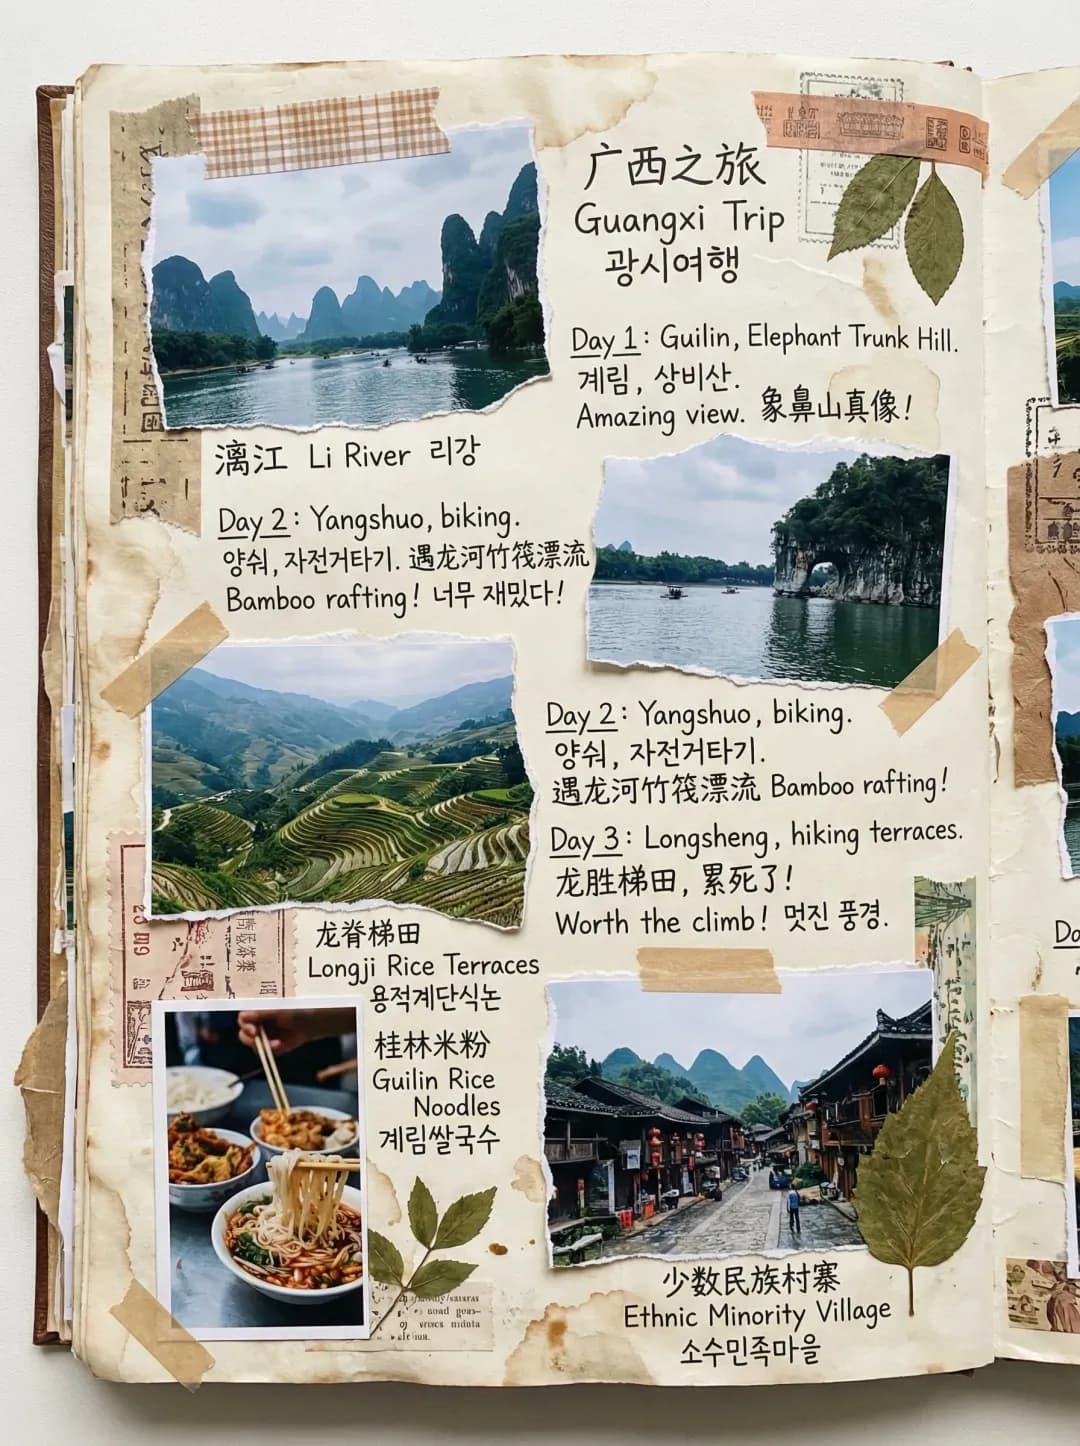 广西之旅
Guangxi Trip
광시여행
Day 1: Guilin, Elephant Trunk Hill.
계림, 상비산.
Amazing view. 象鼻山真像!
漓江 Li River 리강
Day 2: Yangshuo, biking.
양숴, 자전거타기. 遇龙河竹筏漂流
Bamboo rafting! 너무 재밌다!
Day 2: Yangshuo, biking.
양숴, 자전거타기.
遇龙河竹筏漂流 Bamboo rafting!
Day 3: Longsheng, hiking terraces.
龙胜梯田, 累死了!
Worth the climb! 멋진 풍경.
龙脊梯田
Longji Rice Terraces
용적계단식논
桂林米粉
Guilin Rice
Noodles
계림쌀국수
少数民族村寨
Ethnic Minority Village
소수민족마을